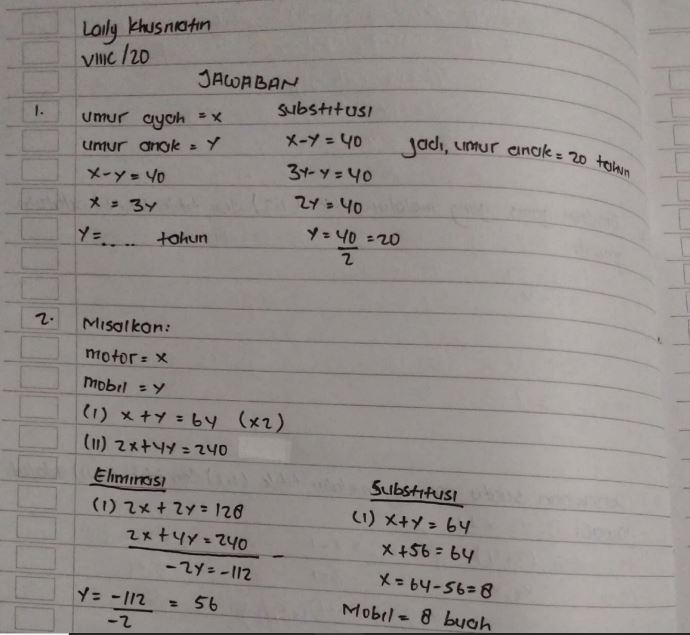 Laily Khusniatin
VIIIC / 20
JAWABAN
1. umur ayah = x
umur anak = Y
x - Y = 40
x = 3Y
Y = .... tahun
Substitusi
x - Y = 40
3Y - Y = 40
2Y = 40
Y = 40/2 = 20
Jadi, umur anak = 20 tahun
2. Misalkan:
motor = x
mobil = Y
(I) x + Y = 64 (x2)
(II) 2x + 4Y = 240
Eliminasi
(I) 2x + 2Y = 128
2x + 4Y = 240 -
-2Y = -112
Y = -112/-2 = 56
Substitusi
(I) x + Y = 64
x + 56 = 64
x = 64 - 56 = 8
Mobil = 8 buah